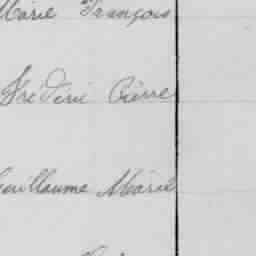 Marie François
Frédéric Pierre
Guillaume Marie